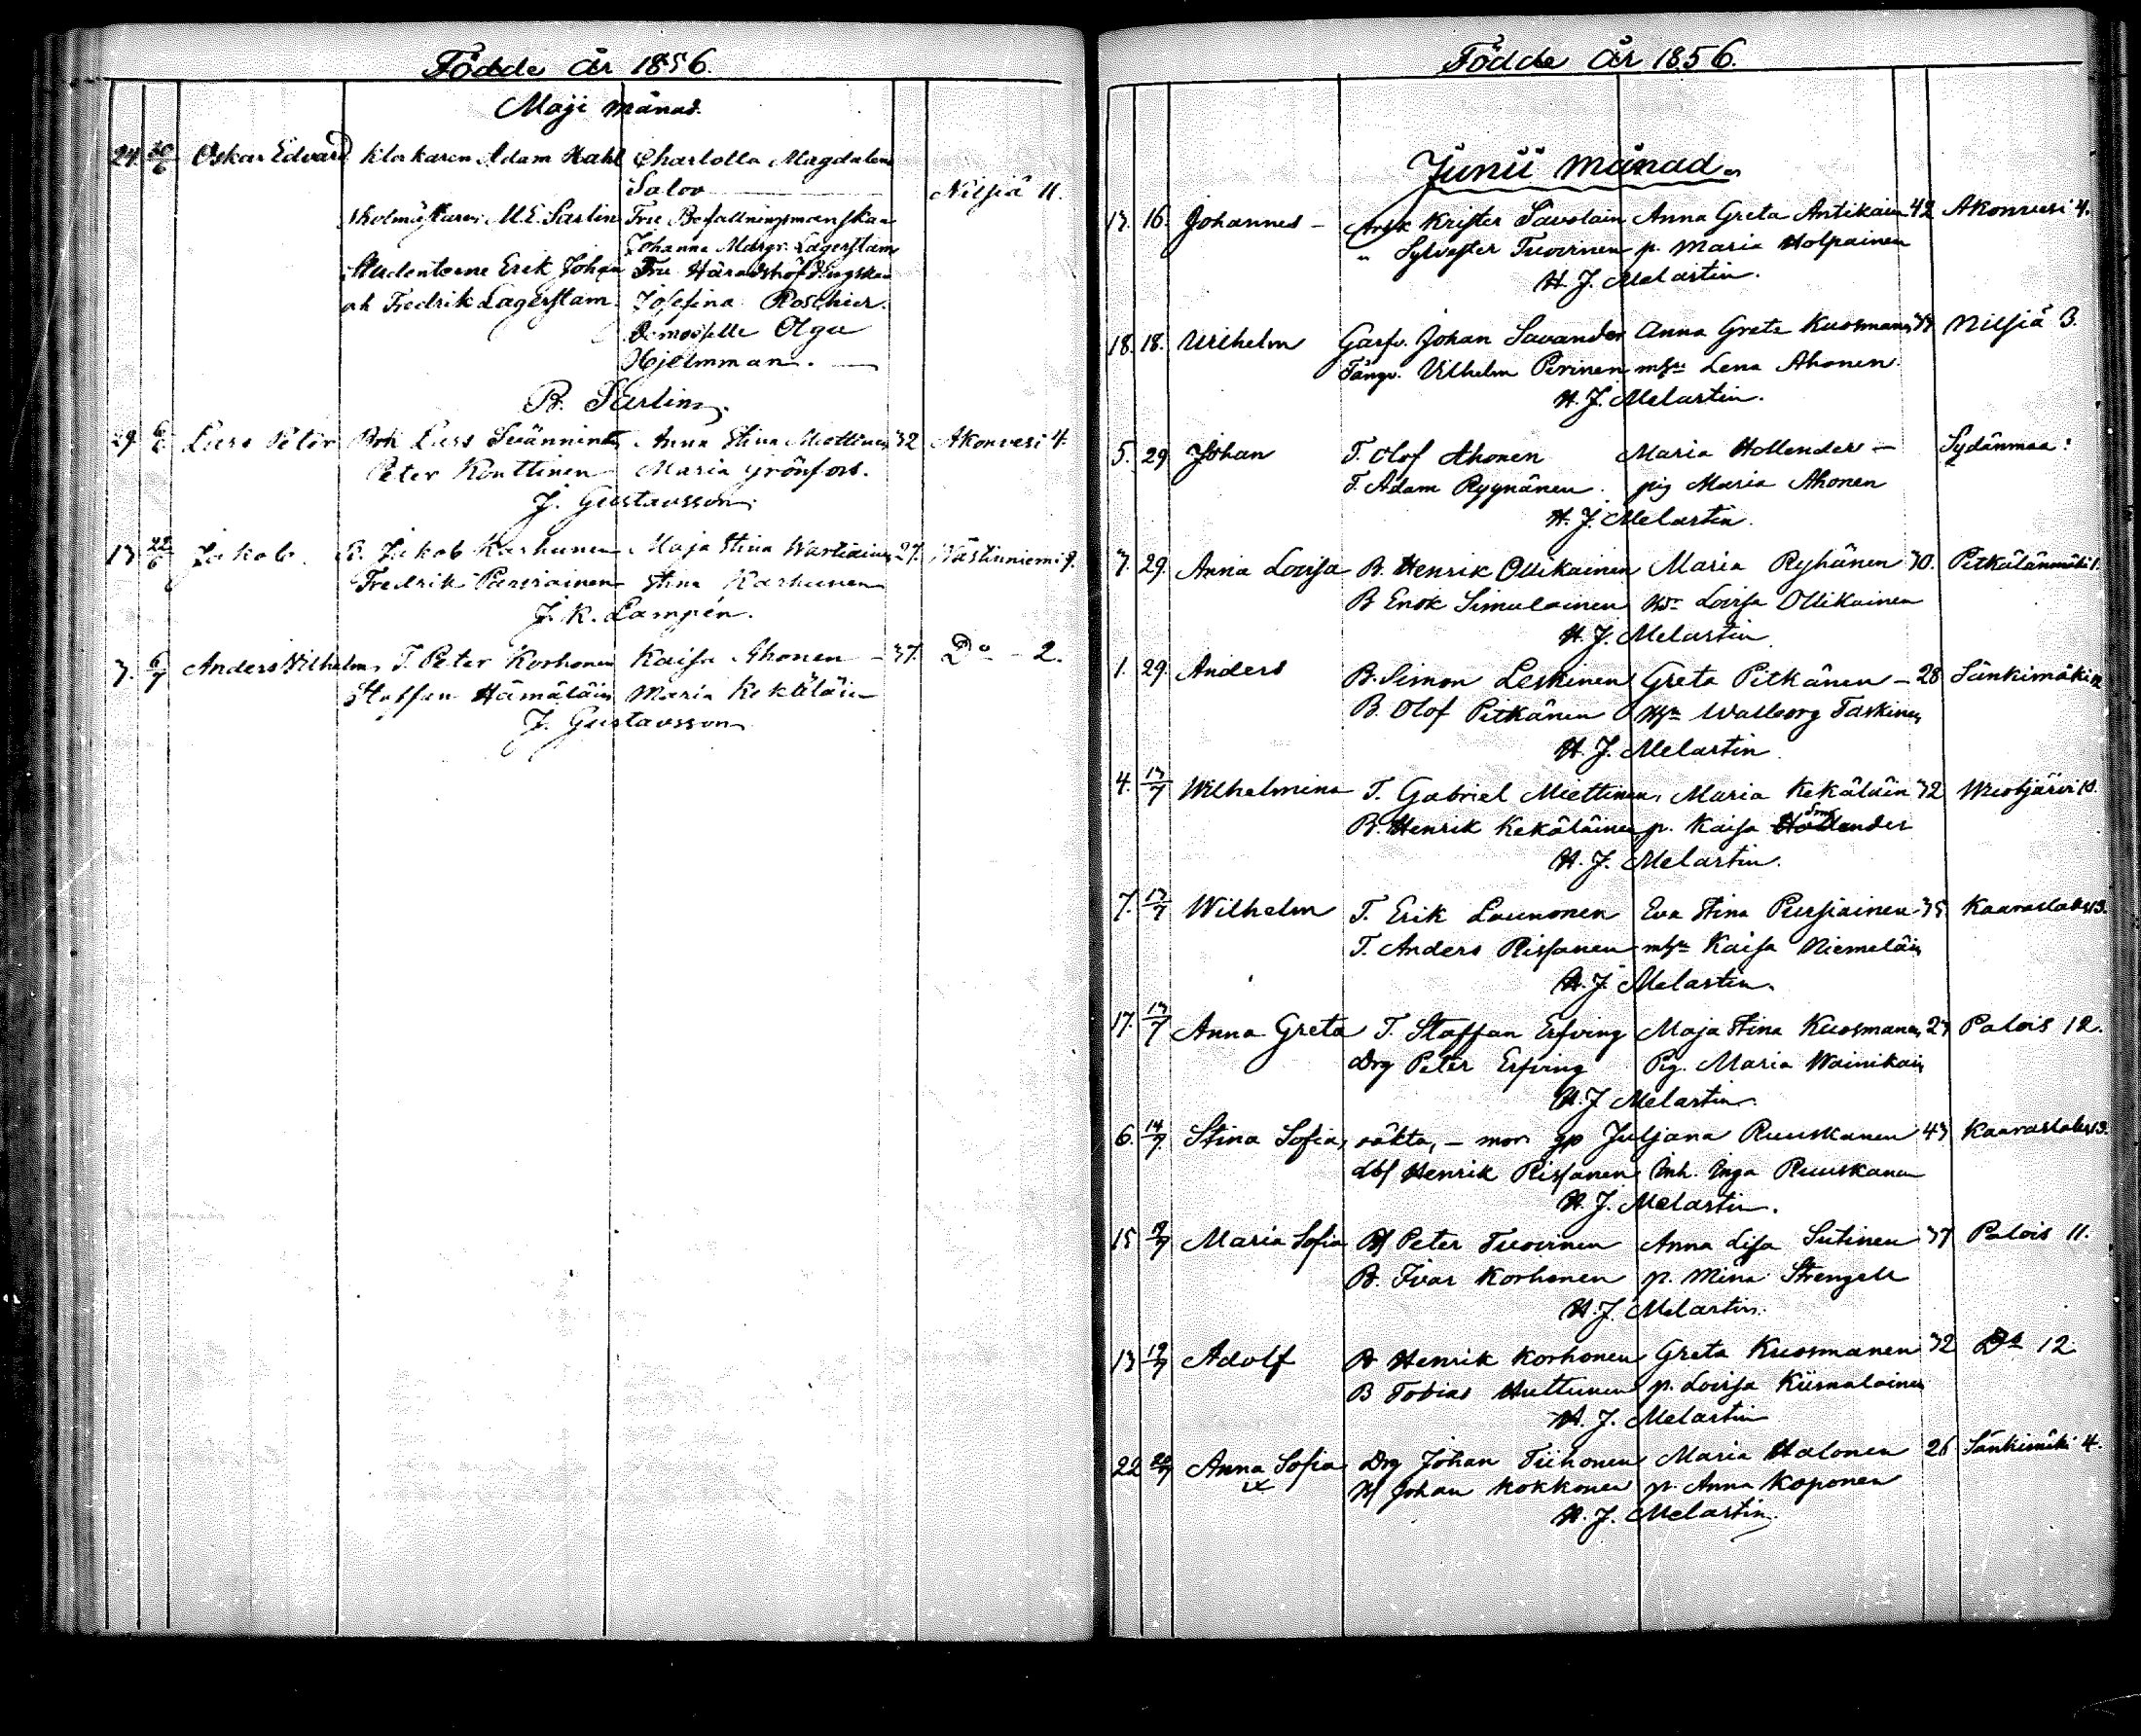 Födde År 1856.
Maji månad.
24. 30/6 Oskar Edvard Klokaren Adam Hahl Charlotta Magdalena
Salov Nilsiä 11.
Skolmästaren M. E. Sarlin Fru Befallningsmanskan
Johanna Margr. Lagerstam
Studenterne Erik Johan Fru Häradshöfdingskan
och Fredrik Lagerstam. Josefina Roschier.
Demoiselle Olga
Hjelmman.
B. Sarlin.
29. 6/6 Lars Peter Bdk Lars Svänninen Anna Stina Miettinen 32 Akonvesi 4.
Peter Konttinen Maria Grönfors.
J. Gustavsson.
13 22/6 Jakob. B. Jakob Karhunen Maja Stina Wartiainen 27. Wästinniemi 9.
Fredrik Parviainen Stina Karhunen
J. K. Lampén.
3. 6/7 Anders Vilhelm, T. Peter Korhonen Kaisa Ahonen - 37. Do - 2.
Staffan Hämäläin Maria Kekäläin
J. Gustavsson
Födde År 1856.
Junii månad.
13. 16. Johannes - Arbk Krister Savolain Anna Greta Antikain 42 Akonvesi 4.
" Sylvester Tuovinen p. Maria Holpainen
H. J. Melartin.
18. 18. Wilhelm Garfv. Johan Savander Anna Greta Kuosmanen 37 Nilsiä 3.
Fångv. Vilhelm Pirinen mhu Lena Ahonen.
H. J. Melartin.
5. 29 Johan T. Olof Ahonen Maria Hollender - Sydänmaa:
T. Adam Ryynänen. pig Maria Ahonen
H. J. Melartin.
7. 29. Anna Lovisa B. Henrik Ollikainen Maria Ryhänen 30. Pitkälänmäki 1.
B Enok Simulainen Hu Lovisa Ollikainen
H. J. Melartin
1. 29. Anders B. Simon Leskinen Greta Pitkänen - 28 Sänkimäki 12
B. Olof Pitkänen Hu Walborg Taskinen
H. J. Melartin.
4. 13/7 Wilhelmina T. Gabriel Miettinen, Maria Kekäläin 32 Wuotjärvi 10.
B. Henrik Kekäläinen p. Kaisa Hollender
H. J. Melartin.
7. 13/7 Wilhelm T. Erik Lounonen Eva Stina Pursiainen 35 Kaaraslaks 13.
T. Anders Rissanen mhu Kaisa Niemeläin
H. J. Melartin.
17. 13/7 Anna Greta T. Staffan Erfving Maja Stina Kuosmanen 23 Palois 12.
Drg Peter Erfving Pig. Maria Wainikain
H. J Melartin.
6. 14/7. Stina Sofia, oäkta, - mor: gp Juljana Ruuskanen 43 Kaaraslaks 13.
Henrik Rissanen Inh. Inga Ruuskanen
H. J. Melartin.
15 19/7 Maria Sofia Peter Tuovinen Anna Lisa Sutinen 37 Palois 11.
B. Ivar Korhonen p. Mina Strengell
H. J. Melartin.
13 19/7 Adolf B Henrik Korhonen Greta Kuosmanen 32 Do 12.
B Tobias Huttunen p. Lovisa Kiismalainen
H. J. Melartin
22 20/7 Anna Sofia Drg Johan Tiihonen Maria Halonen 26 Sänkimäki 4.
Johan Kokkonen p. Anna Koponen
H. J. Melartin.